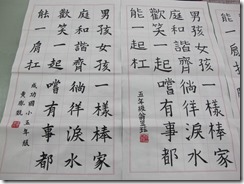 男孩女孩一樣棒家
庭和諧齊徜徉淚水
歡笑一起嚐有事都
能一起扛
五年級
男孩女孩一樣棒家
庭和諧齊徜徉淚水
歡笑一起嚐有事都
能一肩扛
成功國小五年級